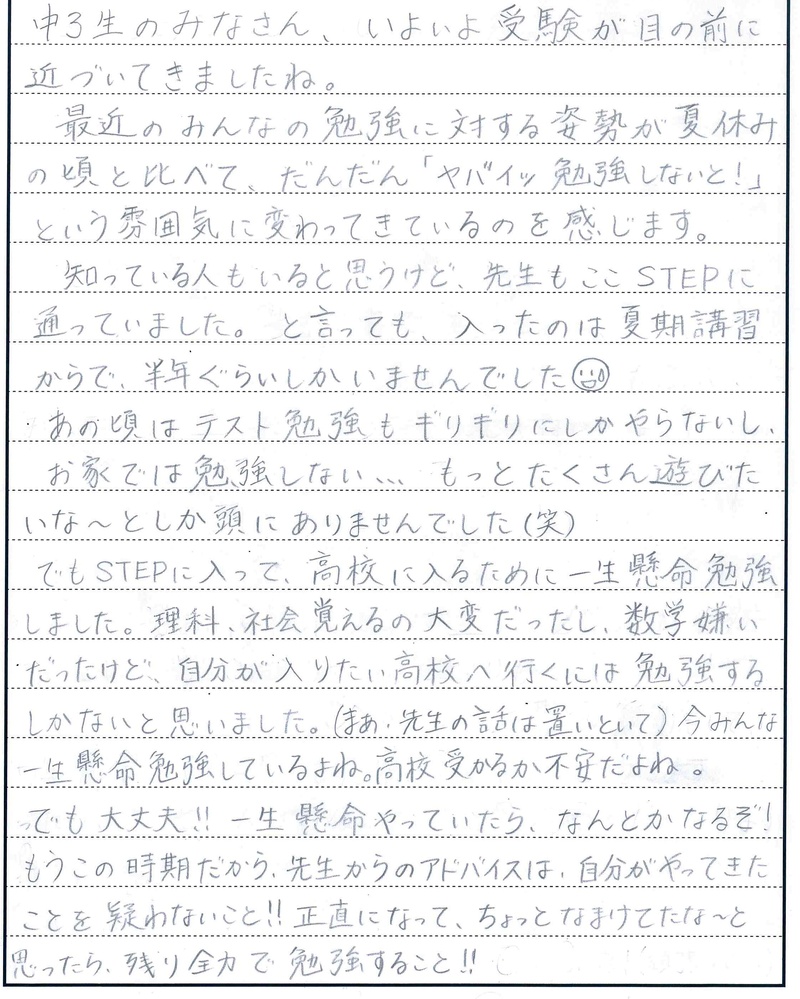 中3生のみなさん、いよいよ受験が目の前に
近づいてきましたね。
最近のみんなの勉強に対する姿勢が夏休み
の頃と比べて、だんだん「ヤバイッ勉強しないと!」
という雰囲気に変わってきているのを感じます。
知っている人もいると思うけど、先生もここSTEPに
通っていました。と言っても、入ったのは夏期講習
からで、半年ぐらいしかいませんでした
あの頃はテスト勉強もギリギリにしかやらないし、
お家では勉強しない... もっとたくさん遊びた
いな~としか頭にありませんでした(笑)
でもSTEPに入って、高校に入るために一生懸命勉強
しました。理科、社会覚えるの大変だったし、数学嫌い
だったけど、自分が入りたい高校へ行くには勉強する
しかないと思いました。(まあ、先生の話は置いといて)今みんな
一生懸命勉強しているよね。高校受かるか不安だよね。
でも大丈夫!!一生懸命やっていたら、なんとかなるぞ!
もうこの時期だから、先生からのアドバイスは、自分がやってきた
ことを疑わないこと!!正直になって、ちょっとなまけてたな~と
思ったら、残り全力で勉強すること!!